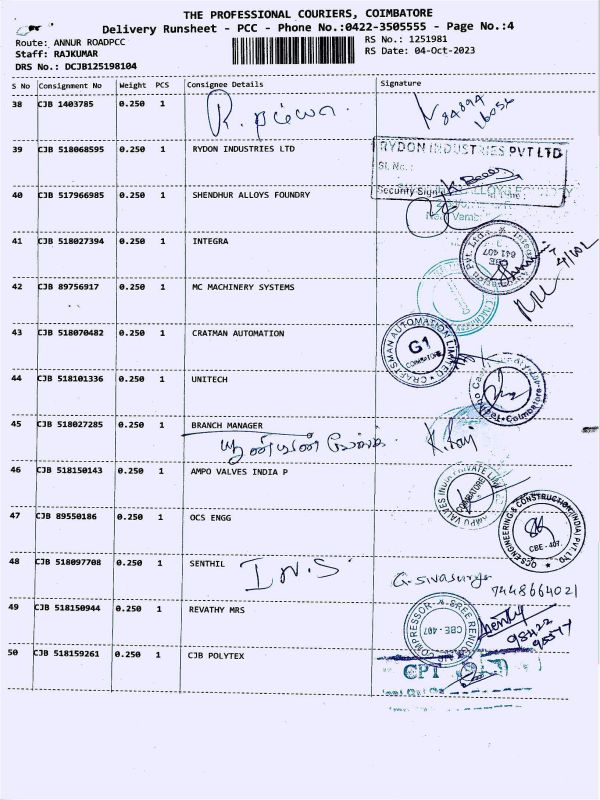 THE PROFESSIONAL COURIERS, COIMBATORE
Delivery Runsheet - PCC - Phone No.:0422-3505555 - Page No.:4
Route: ANNUR ROADPCC
RS No.: 1251981
Staff: RAJKUMAR
RS Date: 04-Oct-2023
DRS No.: DCJB125198104
S No Consignment No Weight PCS Consignee Details Signature
38 CJB 1403785 0.250 1 R.
39 CJB 518068595 0.250 1 RYDON INDUSTRIES LTD
RYDON INDUSTRIES PVT LTD
Sl. No.:
Security Sign
40 CJB 517966985 0.250 1 SHENDHUR ALLOYS FOUNDRY
41 CJB 518027394 0.250 1 INTEGRA
CBE 641 407
42 CJB 89756917 0.250 1 MC MACHINERY SYSTEMS
43 CJB 518070482 0.250 1 CRATMAN AUTOMATION
CRAFTSMAN AUTOMATION LIMITED
G1
COIMBATORE
44 CJB 518101336 0.250 1 UNITECH
Coimbatore
45 CJB 518027285 0.250 1 BRANCH MANAGER
K. Raj
46 CJB 518150143 0.250 1 AMPO VALVES INDIA P
AMPO VALVES INDIA PRIVATE LIMITED
COIMBATORE
47 CJB 89550186 0.250 1 OCS ENGG
OCS ENGINEERING & CONSTRUCTION (INDIA) PVT LTD
CBE - 407.
48 CJB 518097708 0.250 1 SENTHIL
G. Sivasurya
7448664021
49 CJB 518150944 0.250 1 REVATHY MRS
COMPRESSOR
CBE - 407
98422
95577
50 CJB 518159261 0.250 1 CJB POLYTEX
CPT